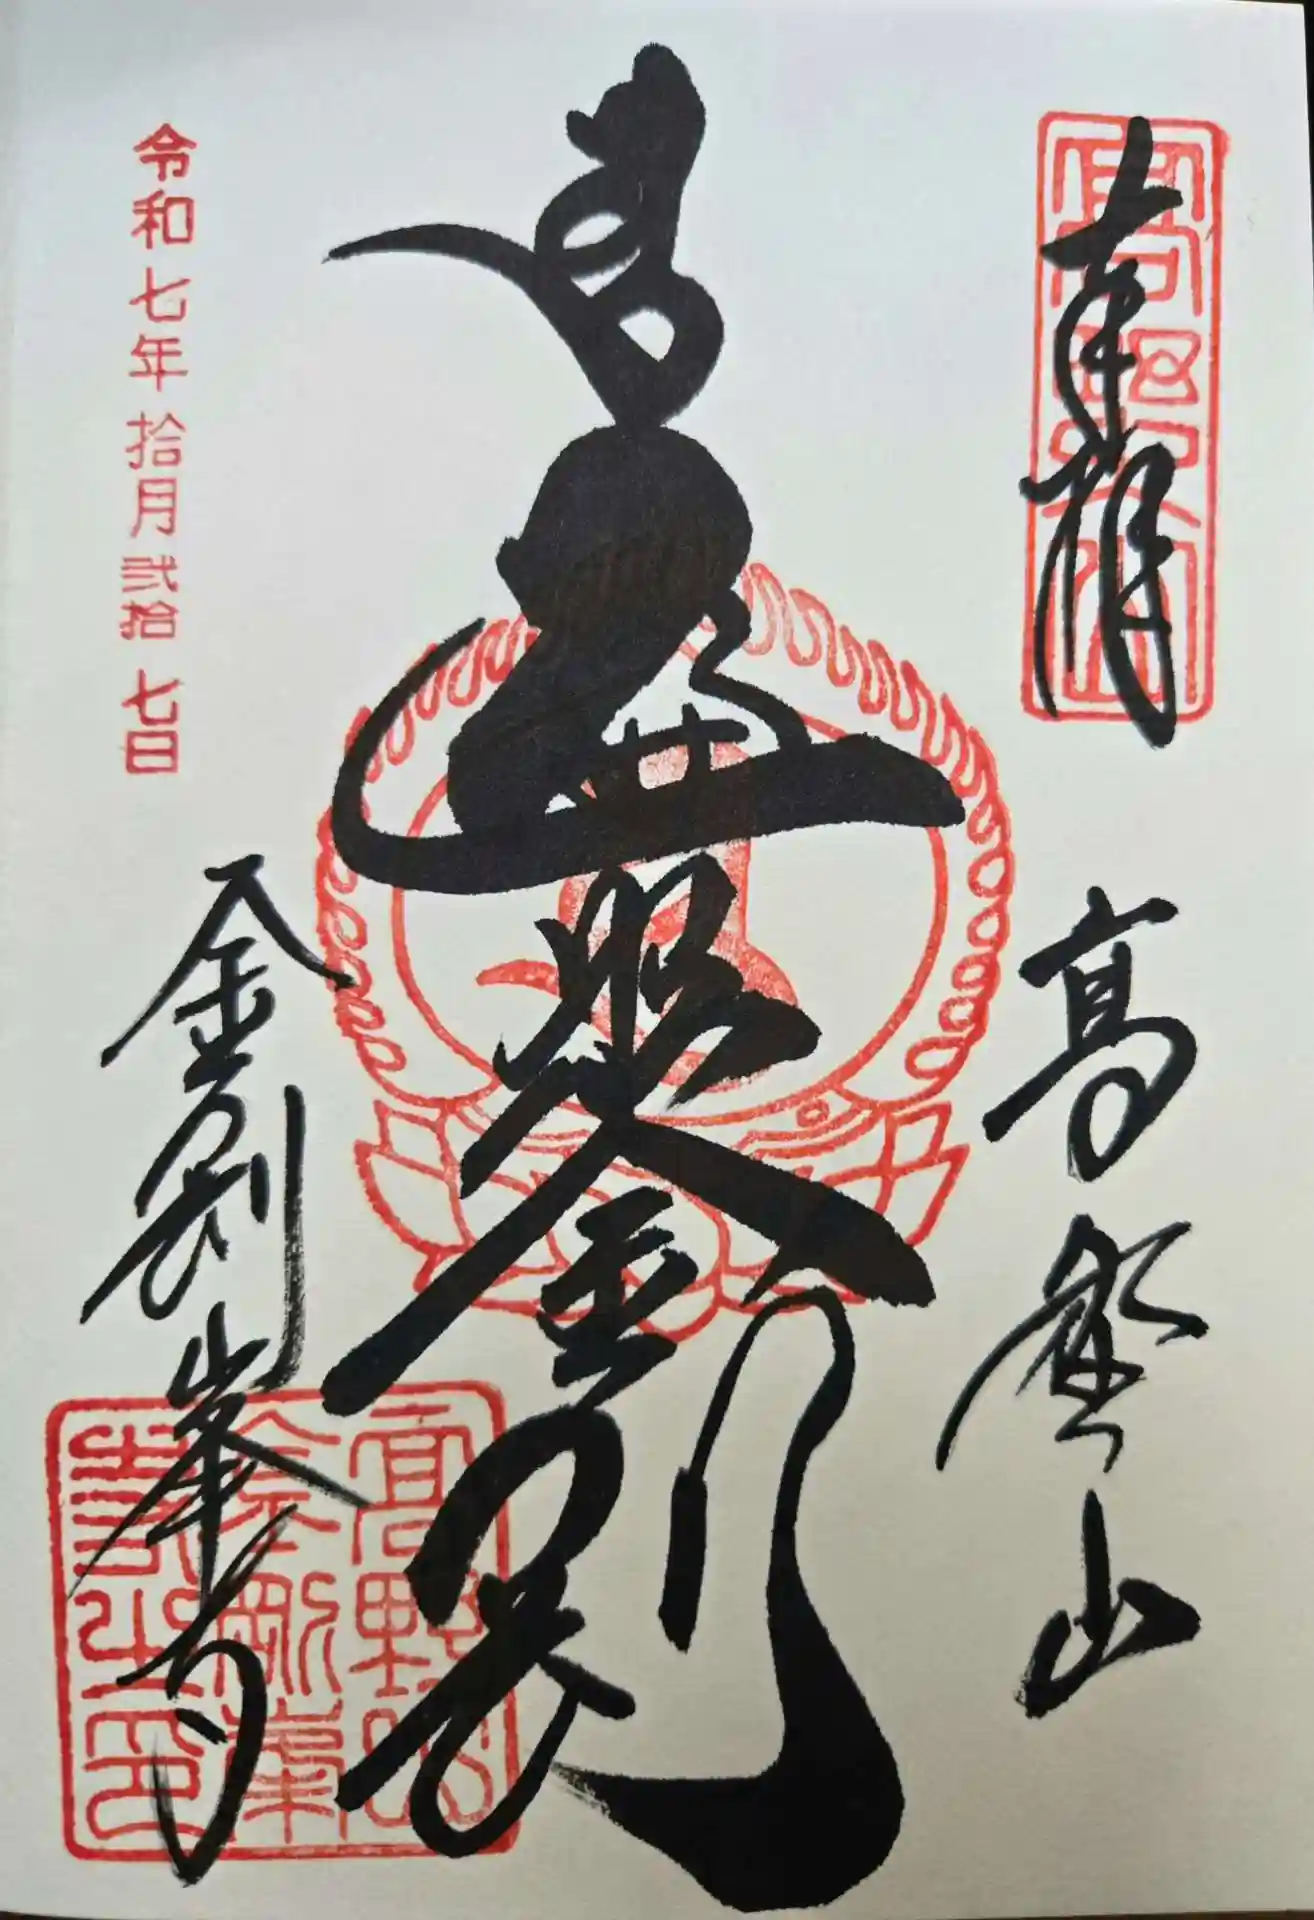 奉拝
高野山
遍照金剛
令和七年拾月弐拾七日
金剛峯寺
高野山
金剛峯
寺之印